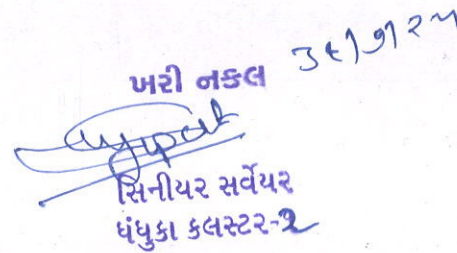 ખરી નકલ
સિનીયર સર્વેયર
ધંધુકા કલસ્ટર-૨